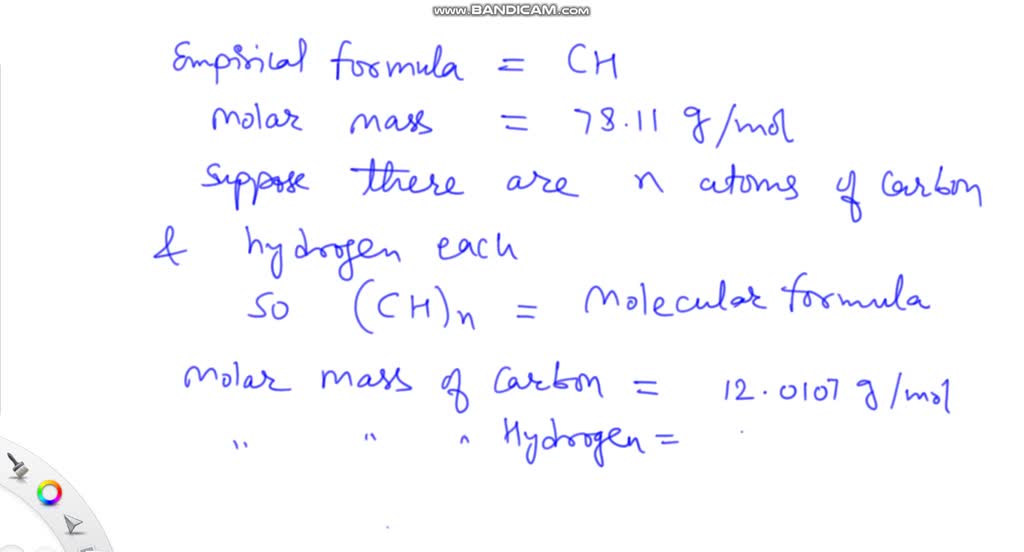 WWW.BANDICAM.COM
Empirical formula = CH
Molar mass = 78.11 g/mol
Suppose there are n atoms of Carbon
& hydrogen each
so (CH)n = Molecular formula
Molar mass of Carbon = 12.0107 g/mol
" " " Hydrogen =